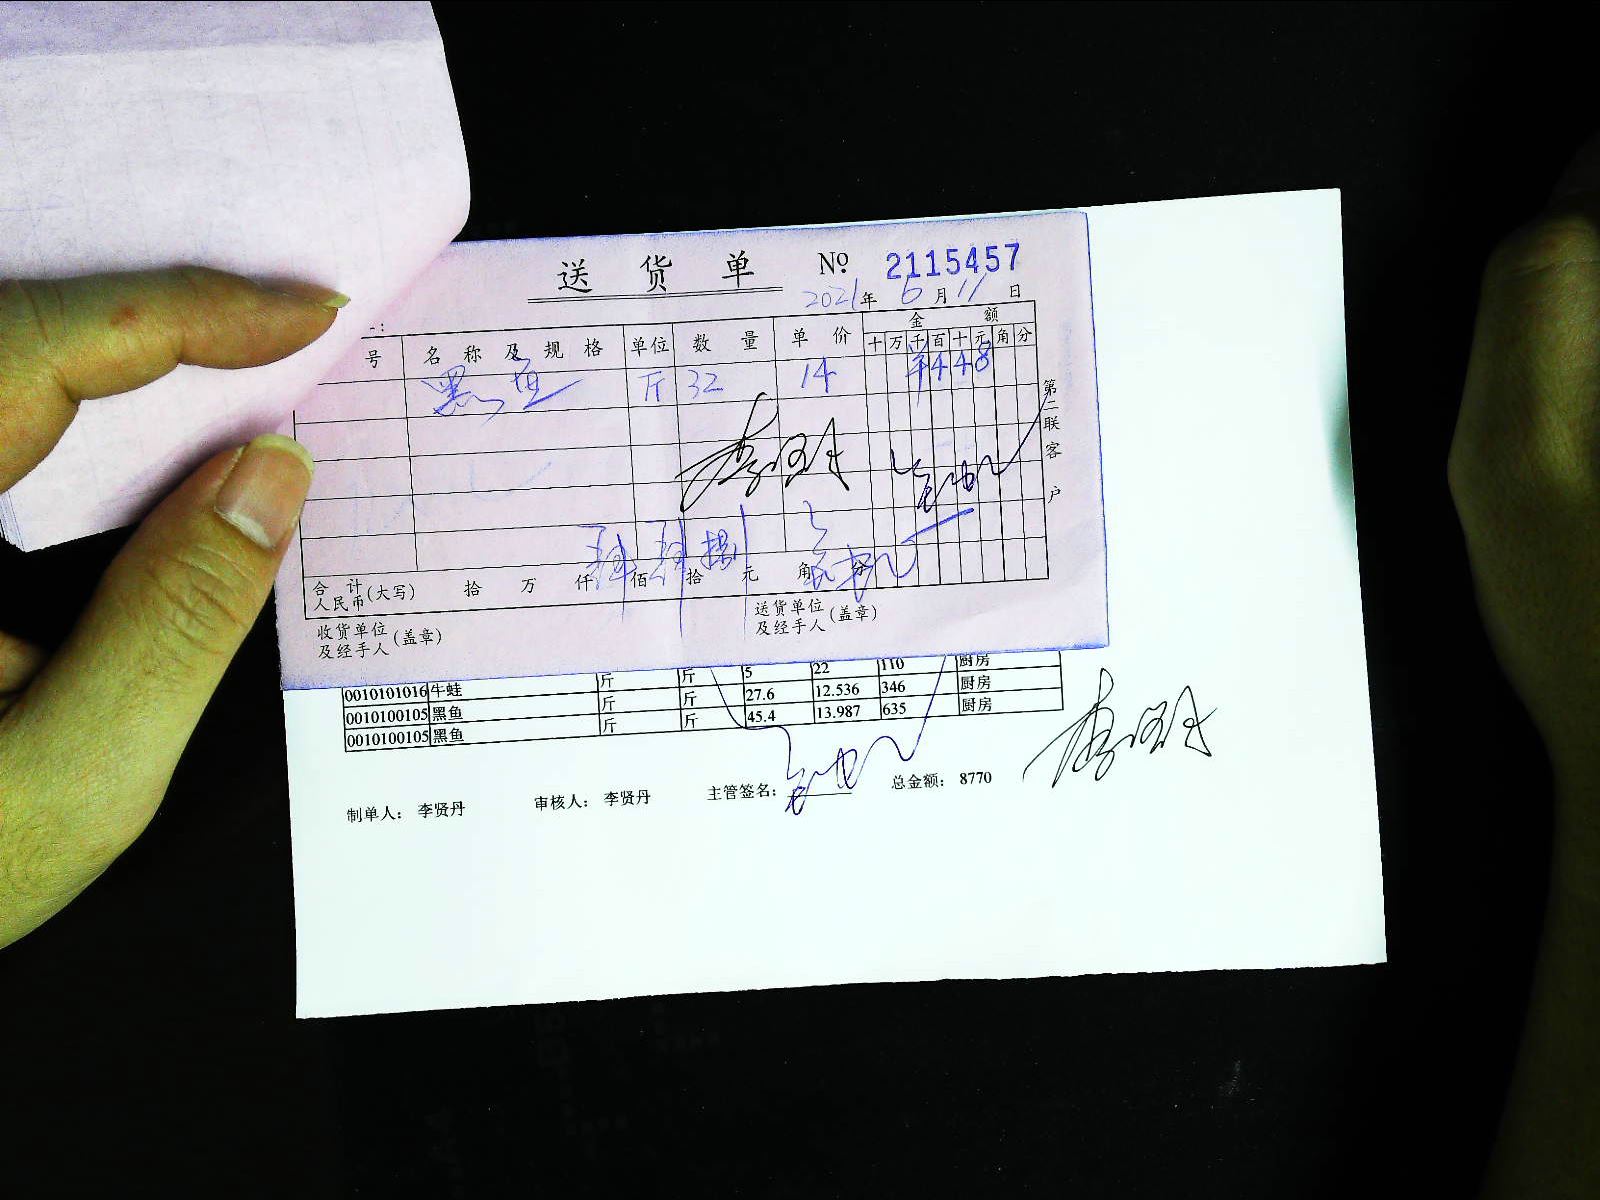 送货单 № 2115457
2021年 6月 11日
号 名称及规格 单位 数量 单价 金额
十 万 千 百 十 元 角 分
黑鱼 斤 32 14 ¥448
第二联 客户
肆 肆 捌
合计 人民币(大写) 拾 万 仟 佰 拾 元 角 分
收货单位及经手人(盖章) 送货单位及经手人(盖章)
5 22 110 厨房
0010101016 牛蛙 斤 斤 27.6 12.536 346 厨房
0010100105 黑鱼 斤 斤 45.4 13.987 635 厨房
0010100105 黑鱼 斤 斤
制单人: 李贤丹 审核人: 李贤丹 主管签名: 总金额: 8770
李贤丹